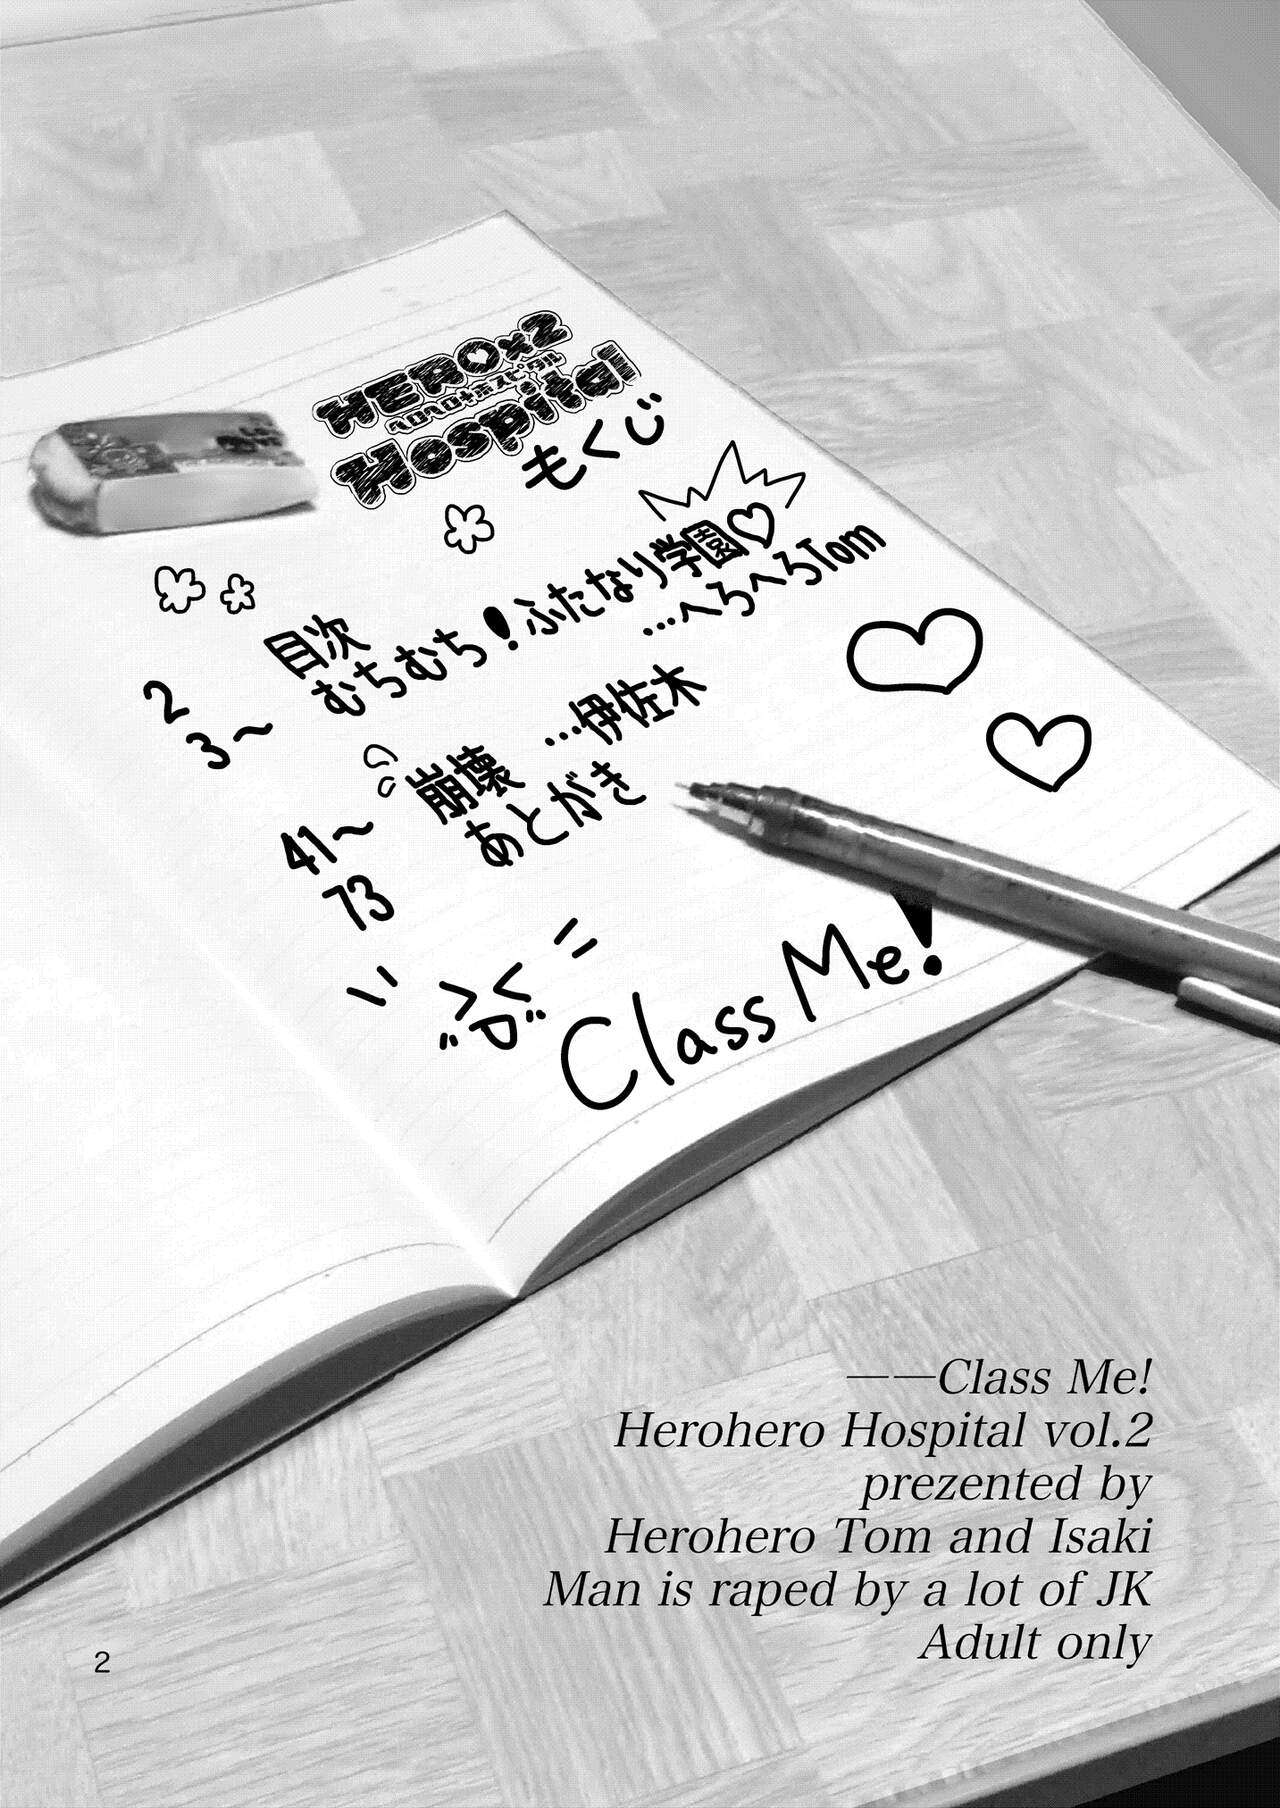 HERO×2
ヘロヘロホスピタル
Hospital
もくじ
2 目次
3～ むちむち！ふたなり学園♡
…へろへろTom
41～ 崩壊 …伊佐木
73 あとがき
Class Me!
――Class Me!
Herohero Hospital vol.2
prezented by
Herohero Tom and Isaki
Man is raped by a lot of JK
Adult only
2